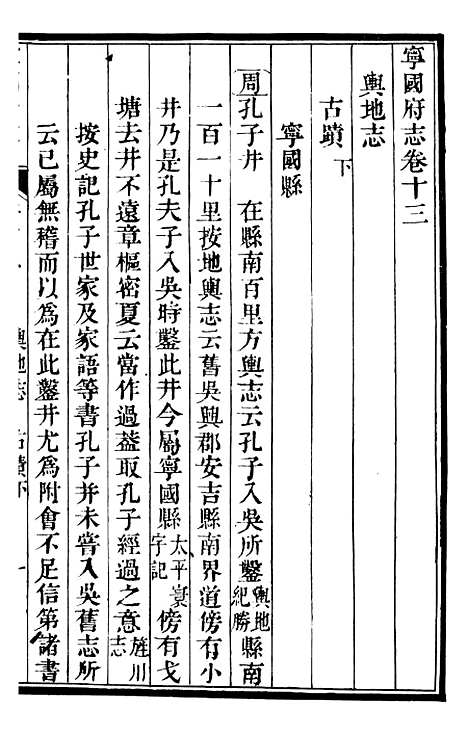 寧國府志卷十三
輿地志
古蹟下
寧國縣
周孔子井 在縣南百里方輿志云孔子入吳所鑿輿地紀勝縣南
一百一十里按地輿志云舊吳興郡安吉縣南界道傍有小
井乃是孔夫子入吳時鑿此井今屬寧國縣太平寰宇記傍有戈
塘去井不遠章樞密夏云當作過葢取孔子經過之意旌川志
按史記孔子世家及家語等書孔子并未嘗入吳舊志所
云已屬無稽而以爲在此鑿井尤爲附會不足信第諸書
輿地志 古蹟下 一